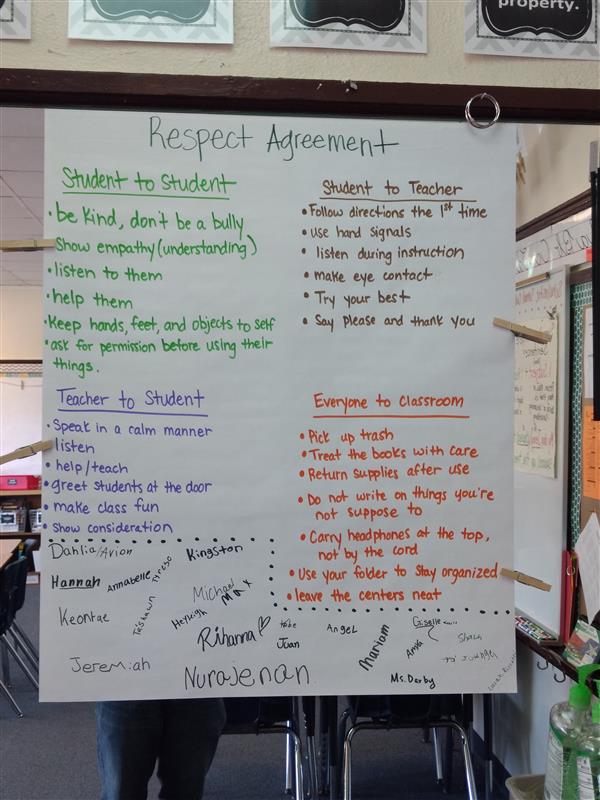 property.
Respect Agreement
Student to Student
• be kind, don't be a bully
• Show empathy (understanding)
• listen to them
• help them
• Keep hands, feet, and objects to self
• ask for permission before using their
things.
Student to Teacher
• Follow directions the 1st time
• use hand signals
• listen during instruction
• make eye contact
• Try your best
• Say please and thank you
Teacher to Student
• Speak in a calm manner
• listen
• help/teach
• greet students at the door
• make class fun
• Show consideration
Everyone to Classroom
• Pick up trash
• Treat the books with care
• Return supplies after use
• Do not write on things you're
not suppose to
• Carry headphones at the top,
not by the cord
• Use your folder to stay organized
• leave the centers neat
Dahlia/Avion
Kingston
Hannah
Annabelle
Michael
Max
Keontae
Rihanna
Juan
Angel
Mariam
Giselle
Jeremiah
Nurajenan
Ms. Derby